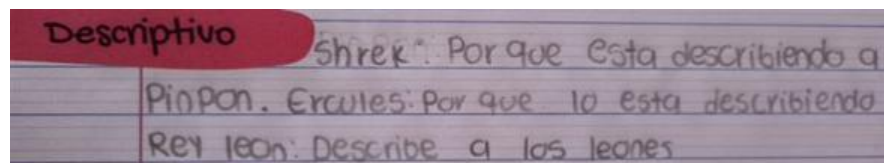 Descriptivo
"Shrek": Por que esta describiendo a
Pinpon. Ercules: Por que lo esta describiendo
Rey leon: Describe a los leones